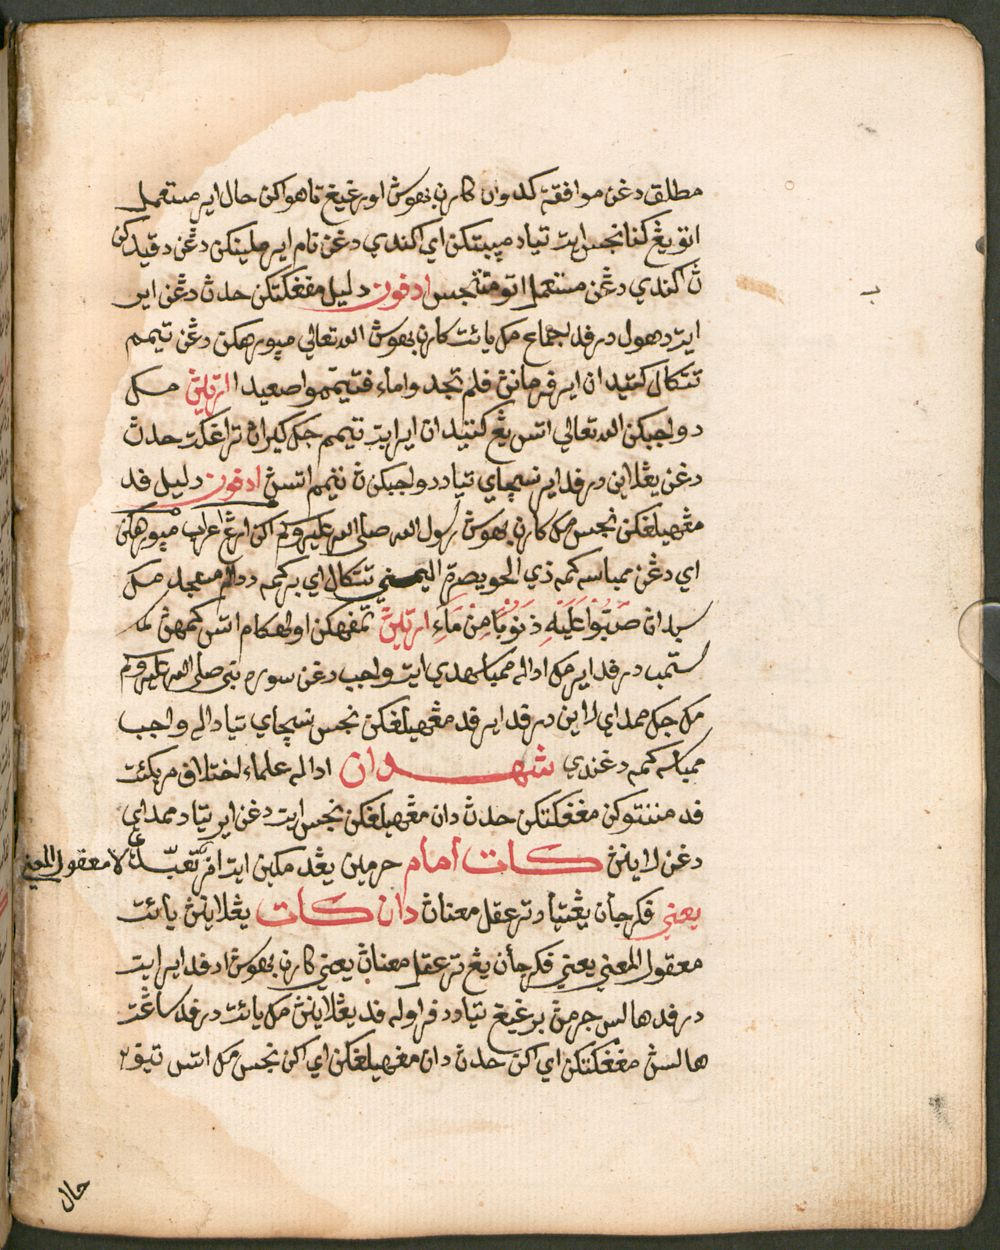 مطلق دغن موافقة كدوان كارن بهوس اورغيغ تاهو اكن حال اير مستعمل
اتو يڠ كنا نجس ايت تياد ميبتكن اي اكندي دغن نام اير ملينكن دڠن دقيدكن
ڽ اكندي دڠن مستعمل اتو متنجس ادفون دليل مڠغكتكن حدث دڠن اير
ايت دهول درفد اجماع مك يائت كارن بهوس الله تعالى مپورهكن دڠن تيمم
تتكال كتيدان اير فرمانن فلم تجدوا ماء فتيمموا صعيدا ارتيڽ مك
دواجبكن الله تعالى اتس يڠ كتيدان اير ايت تيمم جك كيران تراغكت حدث
دغن يڠلاين درفد اير نسچاي تياد دواجبكن ڽ تيمم اتسڽ ادفون دليل فد
مڠهيلڠكن نجس مك كارن بهوس رسول الله صلى الله عليه وسلم اكن اورڠ اعراب مپورهكن
اي دڠن ممباسه كمه ذي الخويصرة اليمني تتكال اي بركمه ددالم مسجد مك
سبدان صَبُّوا عَلَيْهِ ذَنُوبًا مِنْ مَاءٍ ارتيڽ تمفهكن اوله كام اتس كمهڽ
ستمب درفد اير مك اداله ممباسهدي ايت واجب دغن سوره نبي صلى الله عليه وسلم
مك جك ممداي لاين درفد اير فد مڠهيلڠكن نجس نسچاي تياداله واجب
ممباسه كمه دغندي شهدان اداله علماء اختلاف مريكئت
فد مننتوكن مڠغكتكن حدث دان مڠهيلڠكن نجس ايت دغن اير تياد ممداي
دغن لاينڽ كات امام حرمين يڠد مكين ايت امر تعبدي لا معقول المعنى
يعني فكرجأن يڠتيأد ترعقل معناڽ دان كات يڠلاينڽ يائت
معقول المعنى يعني فكرجأن يڠ ترعقل معناڽ يعني كارن بهوس ادفد اير ايت
درفد هالس جرمڽ برغيغ تياد دفراوله فد يڠلاينڽ مك يائت درفد ساڠت
هالسڽ مڠغكتكن اي اكن حدث دان مڠهيلڠكن اي اكن نجس مك اتس تيف٢
حال